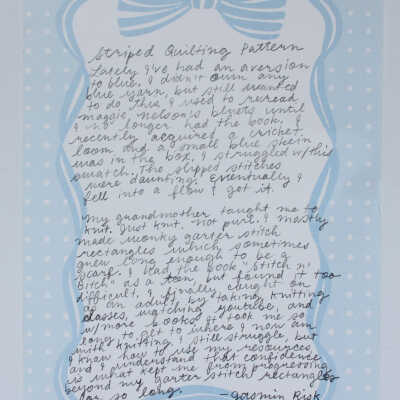 Striped Quilting Pattern
Lately I've had an aversion
to blue. I didn't own any
blue yarn, but still wanted
to do this. I used to reread
maggie nelson's bluets until
I no longer had the book. I
recently acquired a cricket
loom and a small blue skein
was in the box. I struggled w/this
swatch. The slipped stitches
were daunting. Eventually I
fell into a flow & got it.
My grandmother taught me to
knit. Just knit. Not purl. I mostly
made wonky garter stitch
rectangles which sometimes
grew long enough to be a
scarf. I had the book "Stitch n'
Bitch" as a teen but found it too
difficult. I finally caught on
as an adult by taking knitting
classes, watching youtube, and
w/more books. It took me so
long to get to where I now am
with knitting. I still struggle, but
I know how to use my resources
and I understand that confidence
is what kept me from progressing
beyond my garter stitch rectangles
for so long.
-Jasmin Risk